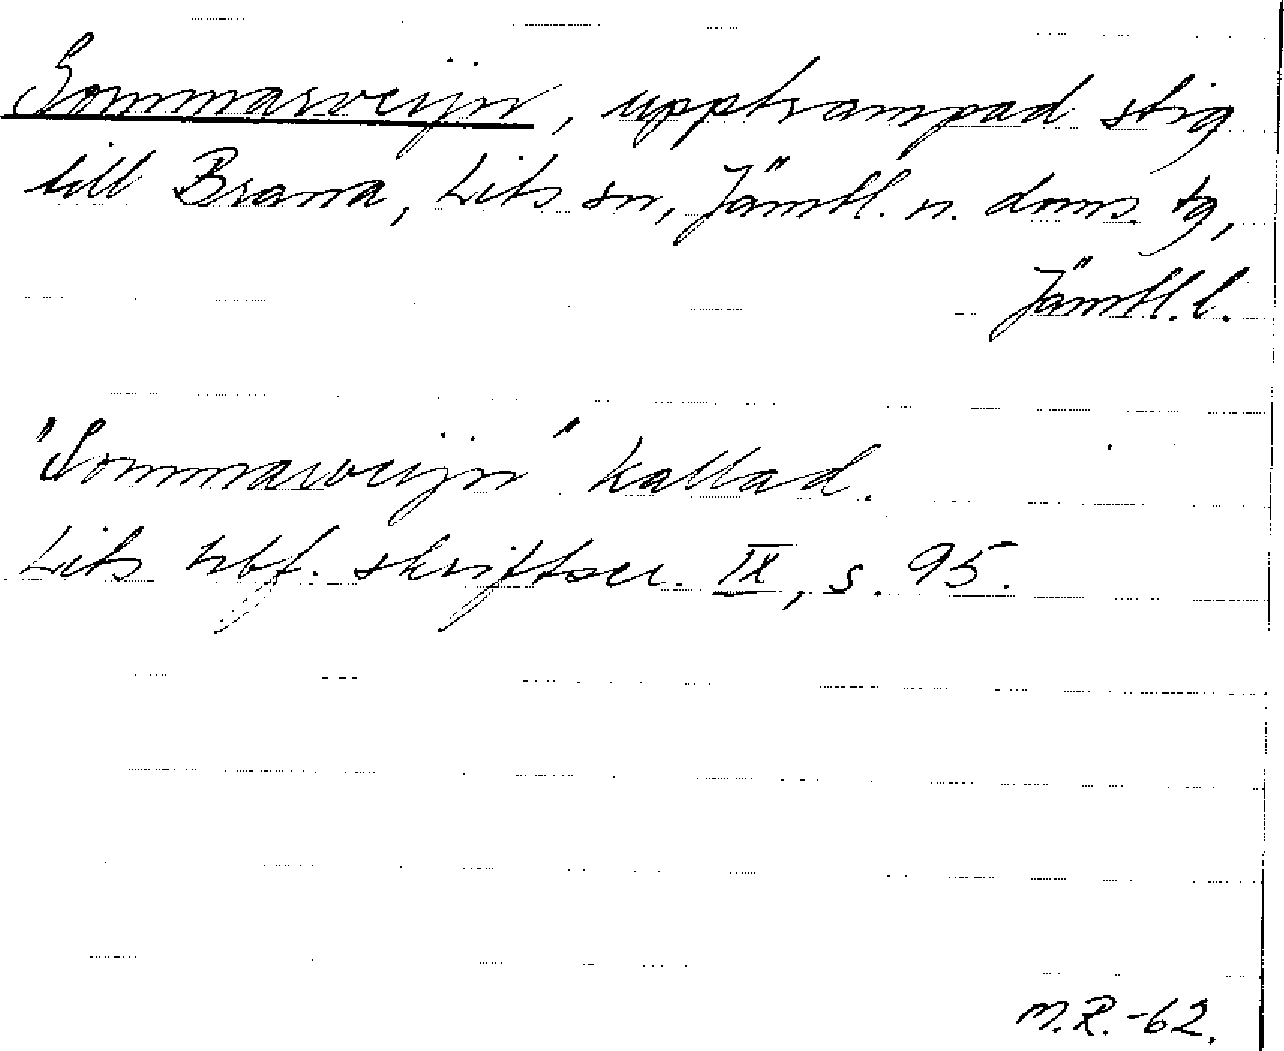 Sommarveijn, upptrampad stig
till Brana, Lits sn, Jämtl. n. doms. tg,
Jämtl. l.
"Sommarveijn" kallad.
Lits hbf. skriftser. IX, s. 95.
M.R.-62.